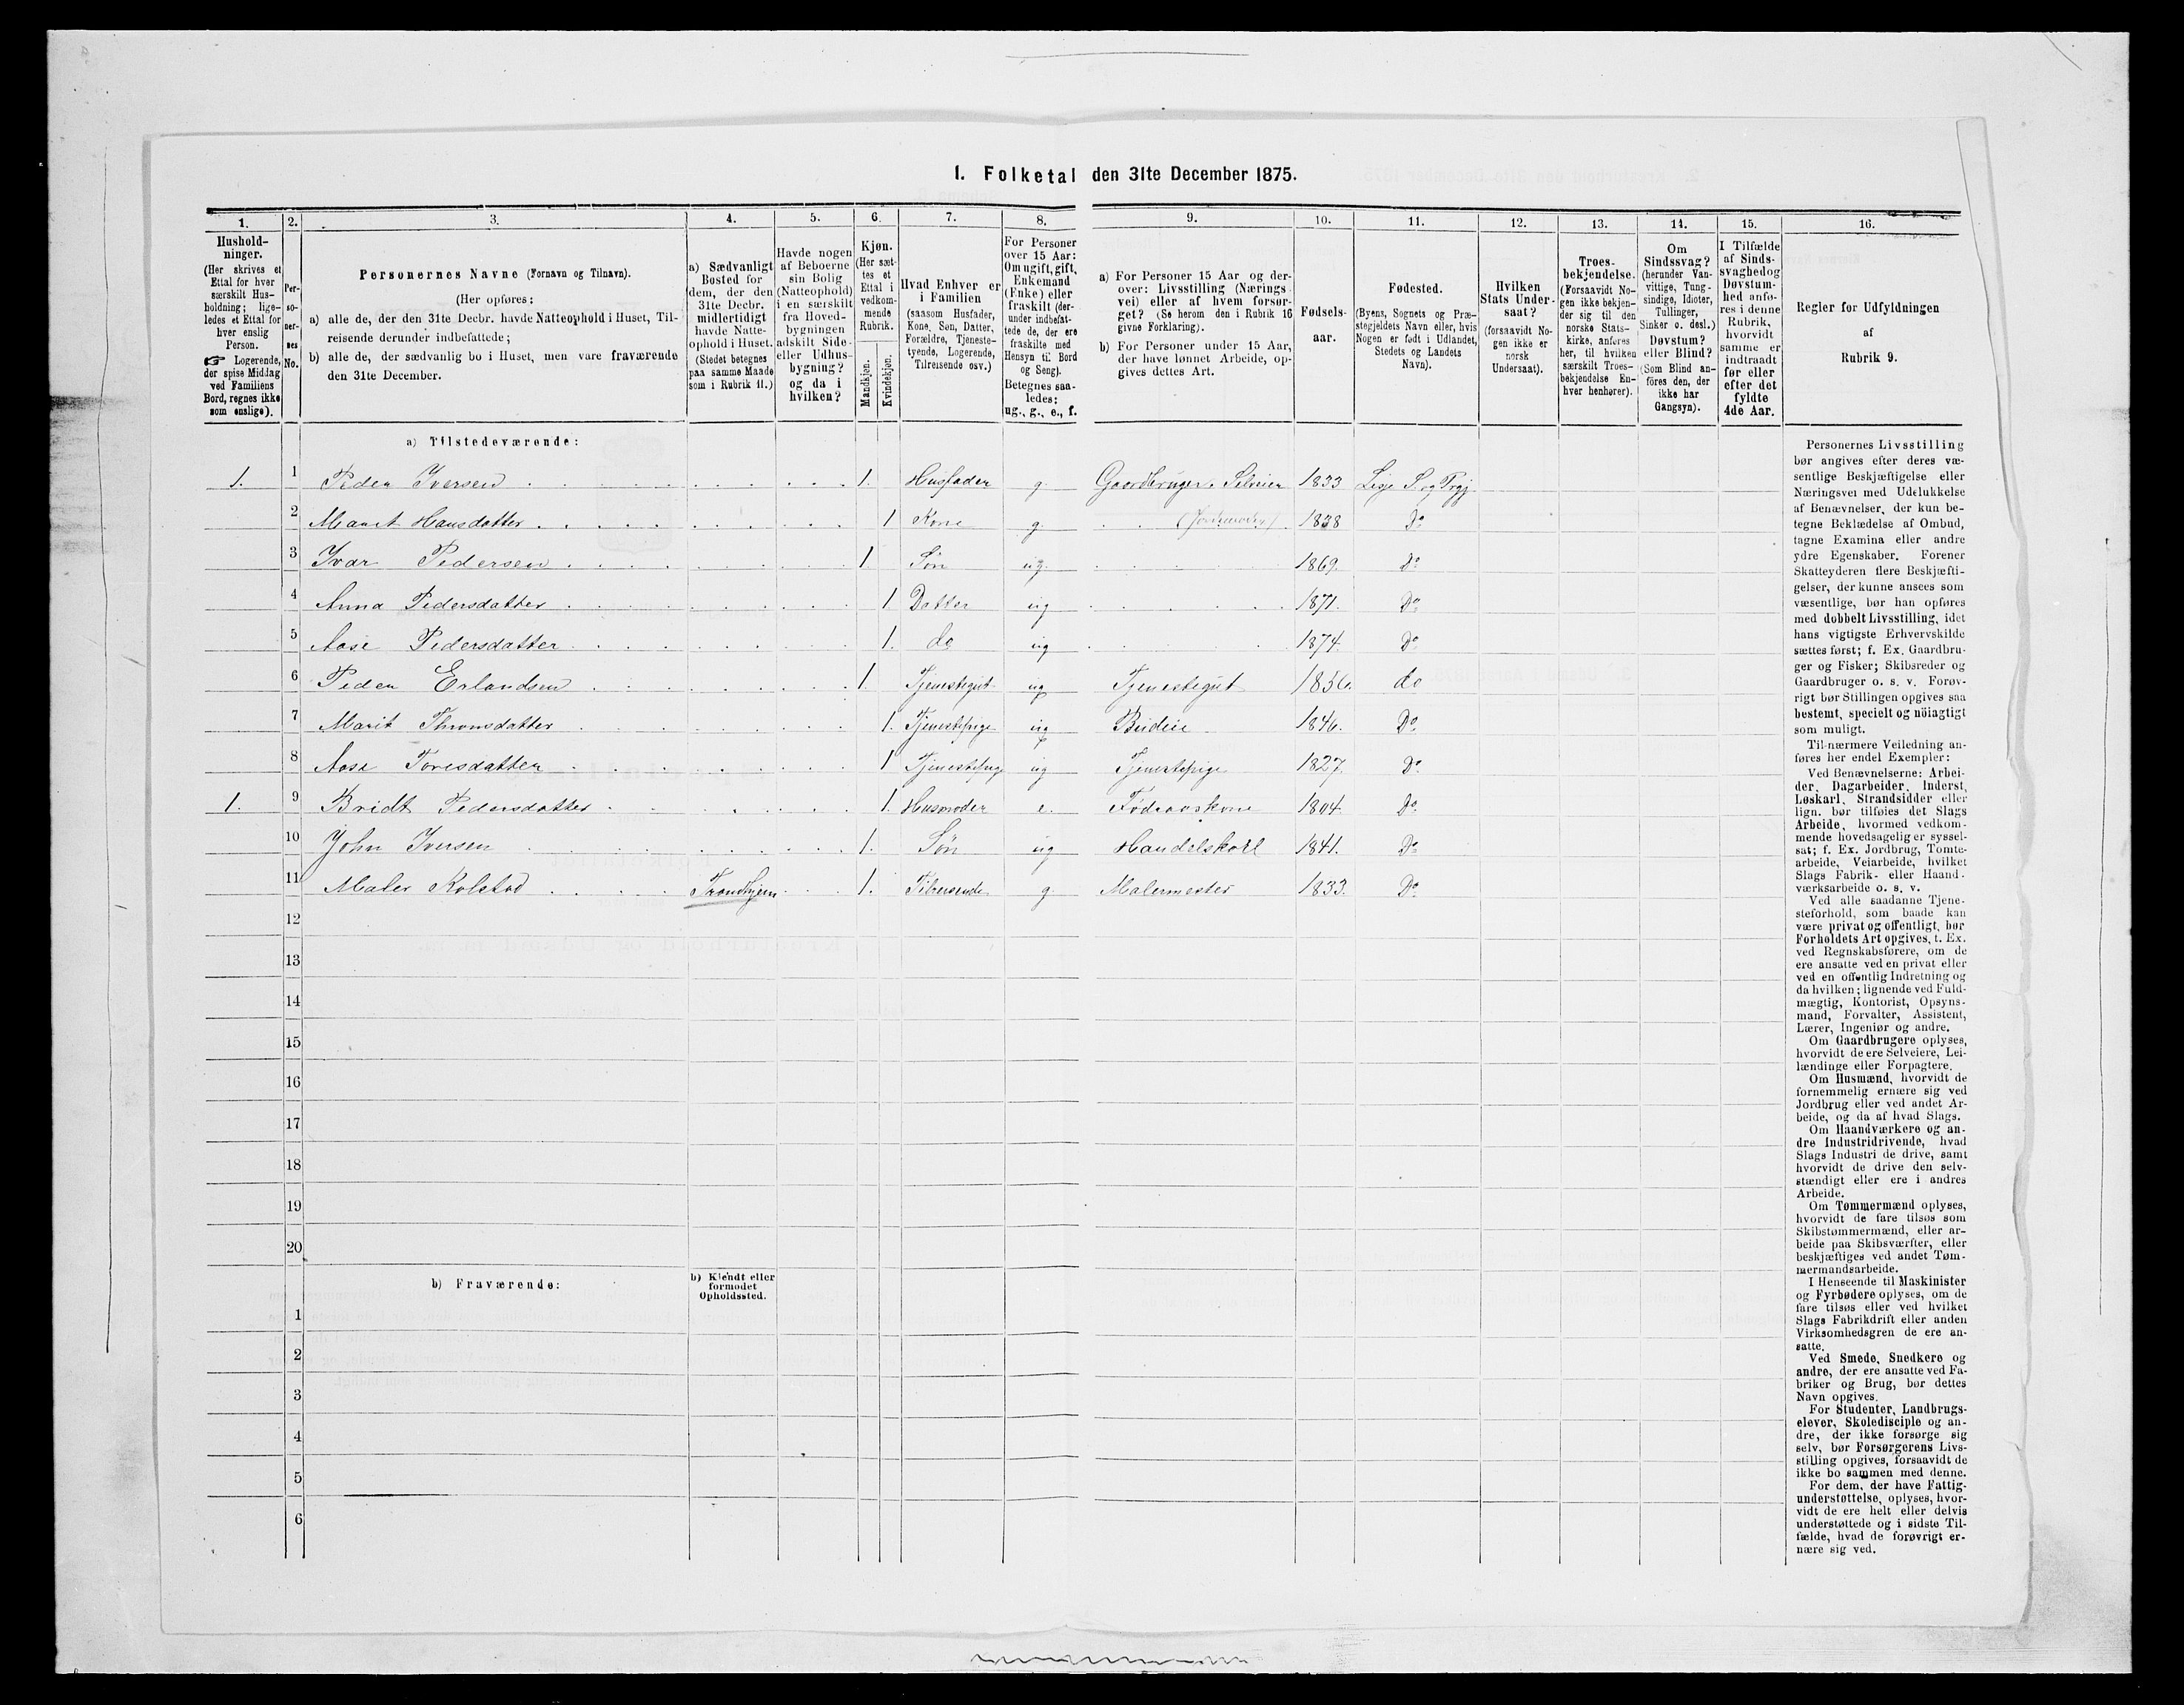 1. Folketal den 31te December 1875.
1. 2. 3. 4. 5. 6. 7. 8. 9. 10. 11. 12. 13. 14. 15. 16.
Hushold-
ninger.
(Her skrives et
Ettal for hver
særskilt Hus-
holdning; lige-
ledes et Ettal for
hver enslig
Person.
☞ Logerende,
der spise Middag
ved Familiens
Bord, regnes ikke
som enslige).
Per-
so-
ner-
nes
No.
Personernes Navne (Fornavn og Tilnavn).
(Her opføres:
a) alle de, der den 31te Decbr. havde Natteophold i Huset, Til-
reisende derunder indbefattede;
b) alle de, der sædvanlig bo i Huset, men vare fraværende
den 31te December.
a) Sædvanligt
Bosted for
dem, der den
31te Decbr.
midlertidigt
havde Natte-
ophold i Huset.
(Stedet betegnes
paa samme Maade
som i Rubrik 11.)
Havde nogen
af Beboerne
sin Bolig
(Natteophold)
i en særskilt
fra Hoved-
bygningen
adskilt Side-
eller Udhus-
bygning?
og da i
hvilken?
Kjøn.
(Her sæt-
tes et
Ettal i
vedkom-
mende
Rubrik.
Mandkjøn.
Kvindekjøn.
Hvad Enhver er
i Familien
(saasom Husfader,
Kone, Søn, Datter,
Forældre, Tjeneste-
tyende, Logerende,
Tilreisende osv.)
For Personer
over 15 Aar:
Om ugift, gift,
Enkemand
(Enke) eller
fraskilt (der-
under indbefat-
tede de, der ere
fraskilte med
Hensyn til Bord
og Seng).
Betegnes saa-
ledes:
ug., g., e., f.
a) For Personer 15 Aar og der-
over: Livsstilling (Nærings-
vei) eller af hvem forsør-
get? (Se herom den i Rubrik 16
givne Forklaring).
b) For Personer under 15 Aar,
der have lønnet Arbeide, op-
gives dettes Art.
Fødsels-
aar.
Fødested.
(Byens, Sognets og Præ-
stegjeldets Navn eller, hvis
Nogen er født i Udlandet,
Stedets og Landets
Navn).
Hvilken
Stats Under-
saat?
(forsaavidt No-
gen ikke er
norsk
Undersaat).
Troes-
bekjendelse.
(Forsaavidt No-
gen ikke bekjen-
der sig til den
norske Stats-
kirke, anføres
her, til hvilken
særskilt Troes-
bekjendelse En-
hver henhører).
Om
Sindssvag?
(herunder Van-
vittige, Tung-
sindige, Idioter,
Tullinger,
Sinker o. desl.)
Døvstum?
eller Blind?
(Som Blind an-
föres den, der
ikke har
Gangsyn).
I Tilfælde
af Sinds-
svaghed og
Døvstum-
hed anfø-
res i denne
Rubrik,
hvorvidt
samme er
indtraadt
før eller
efter det
fyldte
4de Aar.
Regler for Udfyldningen
af
Rubrik 9.
a) Tilstedeværende:
1. 1 Peder Iversen 1. Husfader g. Gaardbruger. Selveier 1833 Lesje S. og Prgj.
2 Marit Hansdatter 1 Kone g. 1838 Do
3 Ivar Pedersen 1. Søn ug. 1869. Do
4 Anna Pedersdatter 1 Datter ug 1871. Do
5 Aase Pedersdatter 1. do ug 1874. Do
6 Peder Erlandsen 1. Tjenestegut ug Tjenestegut 1856. do
7 Marit Thronsdatter 1. Tjenestepige ug Budeie 1846. Do
8 Aase Toresdatter 1 Tjenestepige ug Tjenestepige 1827. Do
1. 9 Bridt Pedersdatter 1. Husmoder e. Føderaadskone 1804. Do
10 John Iversen 1. Søn ug Handelskarl 1841. Do
11 Maler Kolstad Trondhjem 1. Tilreisende g. Malermester 1833. Do
12
13
14
15
16
17
18
19
20
b) Fraværende:
b) Kjendt eller
formodet
Opholdssted.
1
2
3
4
5
6
Personernes Livsstilling
bør angives efter deres væ-
sentlige Beskjæftigelse eller
Næringsvei med Udelukkelse
af Benævnelser, der kun be-
tegne Beklædelse af Ombud,
tagne Examina eller andre
ydre Egenskaber. Forener
Skatteyderen flere Beskjæfti-
gelser, der kunne ansees som
væsentlige, bør han opføres
med dobbelt Livsstilling, idet
hans vigtigste Erhvervskilde
sættes først; f. Ex. Gaardbru-
ger og Fisker; Skibsreder og
Gaardbruger o. s. v. Forøv-
rigt bør Stillingen opgives saa
bestemt, specielt og nöiagtigt
som muligt.
Til nærmere Veiledning an-
føres her endel Exempler:
Ved Benævnelserne: Arbei-
der, Dagarbeider, Inderst,
Løskarl, Strandsidder eller
lign. bør tilføies det Slags
Arbeide, hvormed vedkom-
mende hovedsagelig er syssel-
sat; f. Ex. Jordbrug, Tomte-
arbeide, Veiarbeide, hvilket
Slags Fabrik- eller Haand-
værksarbeide o. s. v.
Ved alle saadanne Tjene-
steforhold, som baade kan
være privat og offentligt, bør
Forholdets Art opgives, t. Ex.
ved Regnskabsførere, om de
ere ansatte ved en privat eller
ved en offentlig Indretning og
da hvilken; lignende ved Fuld-
mægtig, Kontorist, Opsyns-
mand, Forvalter, Assistent,
Lærer, Ingeniør og andre.
Om Gaardbrugere oplyses,
hvorvidt de ere Selveiere, Lei-
lændinge eller Forpagtere.
Om Husmænd, hvorvidt de
fornemmelig ernære sig ved
Jordbrug eller ved andet Ar-
beide, og da af hvad Slags.
Om Haandværkere og an-
dre Industridrivende, hvad
Slags Industri de drive, samt
hvorvidt de drive den selv-
stændigt eller ere i andres
Arbeide.
Om Tømmermænd oplyses,
hvorvidt de fare tilsøs som
Skibstømmermænd, eller ar-
beide paa Skibsværfter, eller
beskjæftiges ved andet Tøm-
mermandsarbeide.
I Henseende til Maskinister
og Fyrbødere oplyses, om de
fare tilsøs eller ved hvilket
Slags Fabrikdrift eller anden
Virksomhedsgren de ere an-
satte.
Ved Smede, Snedkere og
andre, der ere ansatte ved Fa-
briker og Brug, bør dettes
Navn opgives.
For Studenter, Landbrugs-
elever, Skoledisciple og an-
dre, der ikke forsørge sig
selv, bør Forsørgerens Livs-
stilling opgives, forsaavidt de
ikke bo sammen med denne.
For dem, der have Fattig-
understøttelse, oplyses, hvor-
vidt de ere helt eller delvis
understøttede og i sidste Til-
fælde, hvad de forøvrigt er-
nære sig ved.